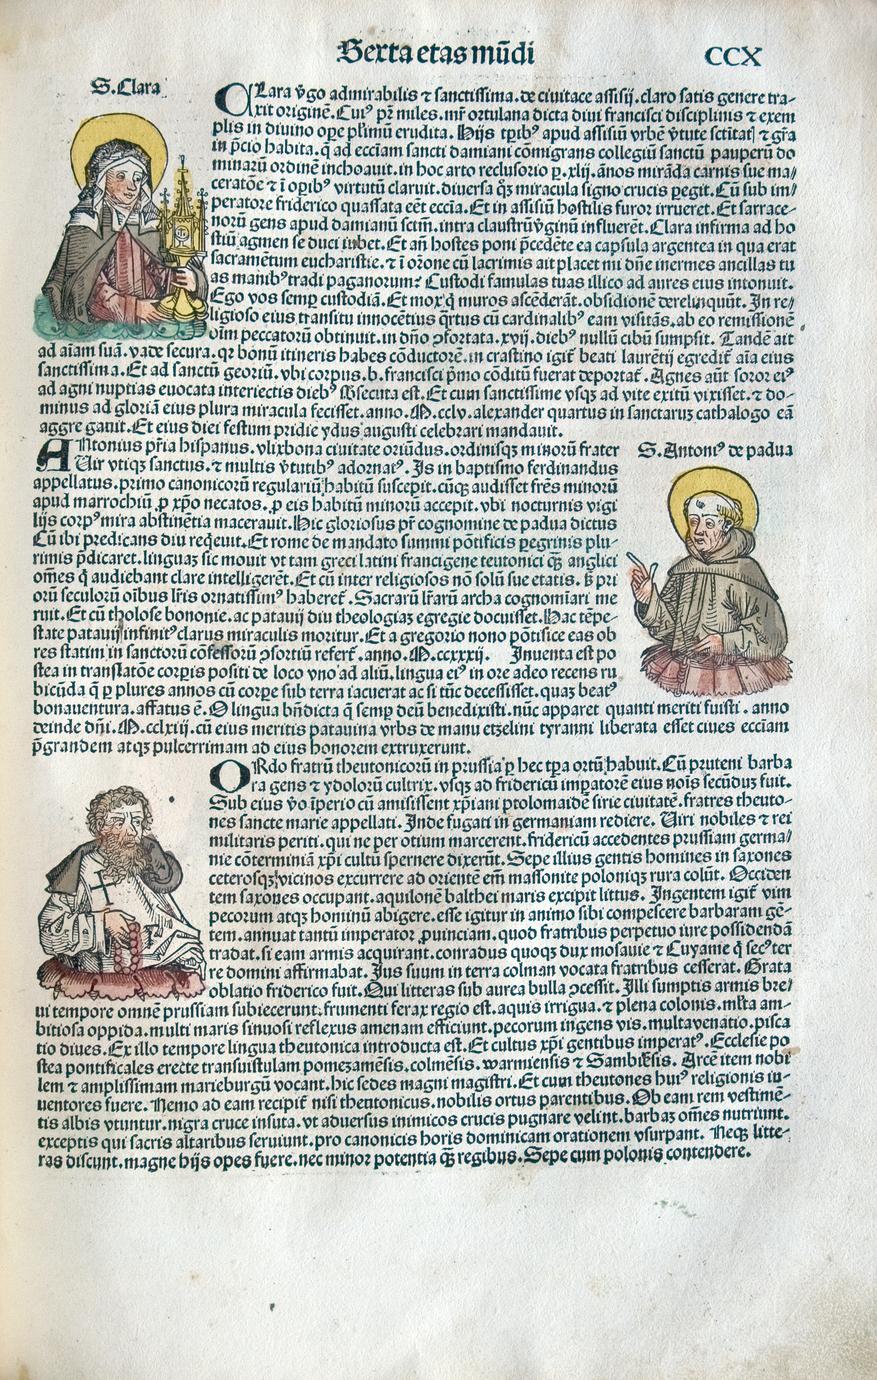 Sexta etas mũdi
CCX
S. Clara
CLara v̄go admirabilis ⁊ sanctissima.de ciuitace assisij.claro satis genere tra-
xit originē.Cui⁹ pr̄ miles. mr̄ ortulana dicta diui francisci disciplinis ⁊ exem
plis in diuino oꝑe pl̄imū erudita. Hijs tꝑib⁹ apud assisiū vrbē v̄tute sc̄titat⁊ ⁊ gr̄a
in p̄cio habita.q̄ ad ecc̄iam sancti damiani cōmigrans collegiū sanctū pauperū do
minarū ordinē inchoauit.in hoc arto reclusorio ꝑ.xlij.ānos mirāda carnis sue ma/
ceratōe ⁊ ī oꝑib⁹ virtutū claruit.diuersa q̄ꝫ miracula signo crucis ꝑegit.Cū sub im/
peratore friderico quassata eēt ecc̄ia.Et in assisiū hostilis furor irrueret.Et sarrace-
norū gens apud damianū sctm̄.intra claustrū v̄ginū influeret.Clara infirma ad ho
stiū agmen se duci iubet.Et añ hostes poni p̄cedēte ea capsula argentea in qua erat
sacramētum eucharistie.⁊ ī or̄one cū lacrimis ait placet mi dn̄e inermes ancillas tu
as manib⁹ tradi paganorum? Custodi famulas tuas illico ad aures eius intonuit.
Ego vos semꝑ custodiā.Et mox q̄ muros ascēderāt.obsidionē derelinquūt. In re/
ligioso eius transitu innocētius q̄rtus cū cardinalib⁹ eam visitās.ab eo remissionē
oīm peccatorū obtinuit.in dn̄o ꝯfortata.xvij.dieb⁹ nullū cibū sumpsit. Tandē ait
ad aīam suā.vade secura.qꝛ bonū itineris habes cōductorē.in crastino igit̄ beati laurētij egredit̄ aīa eius
sanctissima.Et ad sanctū georiū.vbi corpus.b.francisci p̄mo cōditū fuerat deportat̄.Agnes aūt soror ei⁹
ad agni nuptias euocata interiectis dieb⁹ s̄bsecuta est.Et cum sanctissime vsqꝫ ad vite exitū vixisset.⁊ do-
minus ad gloriā eius plura miracula fecisset.anno.M.cclv.alexander quartus in sanctaruꝫ cathalogo eā
aggregauit.Et eius diei festum pridie ydus augusti celebrari mandauit.
S.Antoni⁹ de padua
ANtonius pr̄ia hispanus.vlixbona ciuitate oriūdus.ordinisqꝫ minorū frater
Uir vtiqꝫ sanctus.⁊ multis v̄tutib⁹ adornat⁹. Is in baptismo ferdinandus
appellatus.primo canonicorū regulariū habitū suscepit.cūqꝫ audisset fr̄es minorū
apud marrochiū ꝓ xp̄o necatos.ꝓ eis habitū minorū accepit.vbi nocturnis vigi
lijs corp⁹ mira abstinētia macerauit.Hic gloriosus pr̄ cognomine de padua dictus
Cū ibi predicans diu reqeuit.Et rome de mandato summi pōtificis ꝑegrinis plu-
rimis p̄dicaret.linguaꝫ sic mouit vt tam greci latini francigene teutonici q̄ꝫ anglici
om̄es q̄ audiebant clare intelligerēt.Et cū inter religiosos nō solū sue etatis. s̄ꝫ pri
orū seculorū oībus lr̄is ornatissim⁹ haberet̄.Sacrarū lr̄arū archa cognomīari me
ruit.Et cū tholose bononie.ac patauij diu theologiaꝫ egregie docuisset.Hac tēpe-
state patauij infinit⁹ clarus miraculis moritur.Et a gregorio nono pōtifice eas ob
res statim in sanctorū cōfessorū ꝯsortiū refert̄.anno.M.ccxxxij. Inuenta est po
stea in translatōe corpꝑis positi de loco vno ad aliū.lingua ei⁹ in ore adeo recens ru
bicūda q̄ ꝑ plures annos cū corpꝑe sub terra iacuerat ac si tūc decessisset.quaꝫ beat⁹
bonauentura.affatus ē.O lingua bn̄dicta q̄ semꝑ deū benedixisti.nūc apparet quanti meriti fuisti . anno
deinde dn̄i.M.cclxiij.cū eius meritis patauina vrbs de manu etzelini tyranni liberata esset ciues ecc̄iam
p̄grandem atqꝫ pulcerrimam ad eius honorem extruxerunt.
ORdo fratrū theutonicorū in prussia ꝑ hec tꝑa ortū habuit. Cū pruteni barba
ra gens ⁊ ydolorū cultrix.vsqꝫ ad fridericū imꝑatorē eius noīs secūduꝫ fuit.
Sub eius v̄o īperio cū amisissent xp̄iani ptolomaidē sirie ciuitatē.fratres theuto-
nes sancte marie appellati.Inde fugati in germaniam rediere. Uiri nobiles ⁊ rei
militaris periti. qui ne per otium marcerent.fridericū accedentes prussiam germa/
nie cōterminā xp̄i cultū spernere dixerūt.Sepe illius gentis homines in saxones
ceterosqꝫ vicinos excurrere ad orientē em̄ massonite poloniqꝫ rura colūt. Occiden
tem saxones occupant.aquilonē balthei maris excipit littus. Ingentem igit̄ vim
pecorum atqꝫ hominū abigere.esse igitur in animo sibi compescere barbaram gē-
tem.annuat tantū imperator ꝓuinciam.quod fratribus perpetuo iure possidendā
tradat.si eam armis acquirant.conradus quoqꝫ dux mosauie ⁊ Cuyame q̄ sec⁹ ter
re domini affirmabat. Ius suum in terra colman vocata fratribus cesserat. Grata
oblatio friderico fuit.Qui litteras sub aurea bulla ꝯcessit. Illi sumptis armis bre/
ui tempore omnē prussiam subiecerunt:frumenti ferax regio est.aquis irrigua.⁊ plena colonis.ml̄ta am-
bitiosa oppida.multi maris sinuosi reflexus amenam efficiunt.pecorum ingens vis.multa venatio.pisca
tio diues.Ex illo tempore lingua theutonica introducta est.Et cultus xp̄i gentibus imperat⁹.Ecclesie po
stea pontificales erecte transuistulam pomezamēsis.colmēsis.warmiensis ⁊ Sambiēsis. Arcē item nobi
lem ⁊ amplissimam marieburgū vocant.hic sedes magni magistri.Et cum theutones hui⁹ religionis in-
uentores fuere. Nemo ad eam recipit̄ nisi theutonicus.nobilis ortus parentibus. Ob eam rem vestimē-
tis albis vtuntur.nigra cruce insuta.vt aduersus inimicos crucis pugnare velint.barbaꝫ om̄es nutriunt.
exceptis qui sacris altaribus seruiunt.pro canonicis horis dominicam orationem vsurpant. Neqꝫ litte-
ras discunt.magne hijs opes fuere.nec minor potentia q̄ꝫ regibus.Sepe cum polonis contendere.